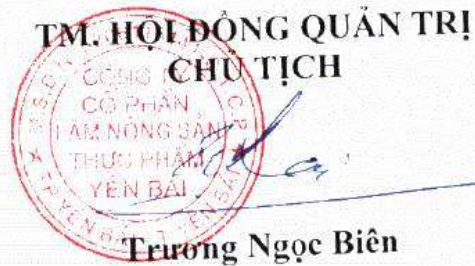 TM. HỘI ĐỒNG QUẢN TRỊ
CHỦ TỊCH
CÔNG TY
CỔ PHẦN
LÂM NÔNG SẢN
THỰC PHẨM
YÊN BÁI
Trương Ngọc Biên